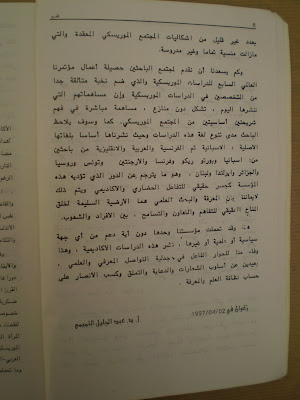 8
تقديم
بعدد غير قليل من اشكاليات المجتمع الموريسكي المعقدة والتي
مازالت منسية تماما وغير مدروسة.
وكم يسعدنا أن نقدم لمجتمع الباحثين حصيلة أعمال مؤتمرنا
العالمي السابع للدراسات الموريسكية والذي ضم نخبة متألقة جدا
من المتخصصين في الدراسات الموريسكية وإن مساهماتهم التي
ننشرها اليوم ، تشكل دون منازع ، مساهمة مباشرة في فهم
شريحتين أساسيتين من المجتمع الموريسكي. كما وسوف يلاحظ
الباحث مدى تنوع لغة هذه الدراسات وحيث نشرناها أساسا بلغاتها
الاصلية ، الاسبانية ثم الفرنسية والعربية والانجليزية من باحثين
من: اسبانيا وبورتو ريكو وفرنسا والارجنتين وتونس وروسيا
والجزائر وايرلندا ولبنان . وهو ما يترجم عن الدور الذي تؤديه هذه
المؤسسة كجسر حقيقي للتفاعل الحضاري والاكاديمي ويتم ذلك
لايماننا بان المعرفة والبحث العلمي هما الارضية السليمة لخلق
المناخ الحقيقي للتفاهم والتعاون والتسامح ، بين الافراد والشعوب.
هذا وقد تحملت مؤسستنا وحدها دون أية دعم من أي جهة
سياسية أو مالية أو غيرها ، نشر هذه الدراسات الاكاديمية ، وهذا
وفاء منا للحوار الفاعل في جدلية التواصل المعرفي والعلمي ،
بعيدين عن أسلوب الشعارات والدعاية والتملق وكسب الانصار على
حساب نظافة العلم والمعرفة .
زغوان في 1997/04/02
أ. د. عبد الجليل التميمي